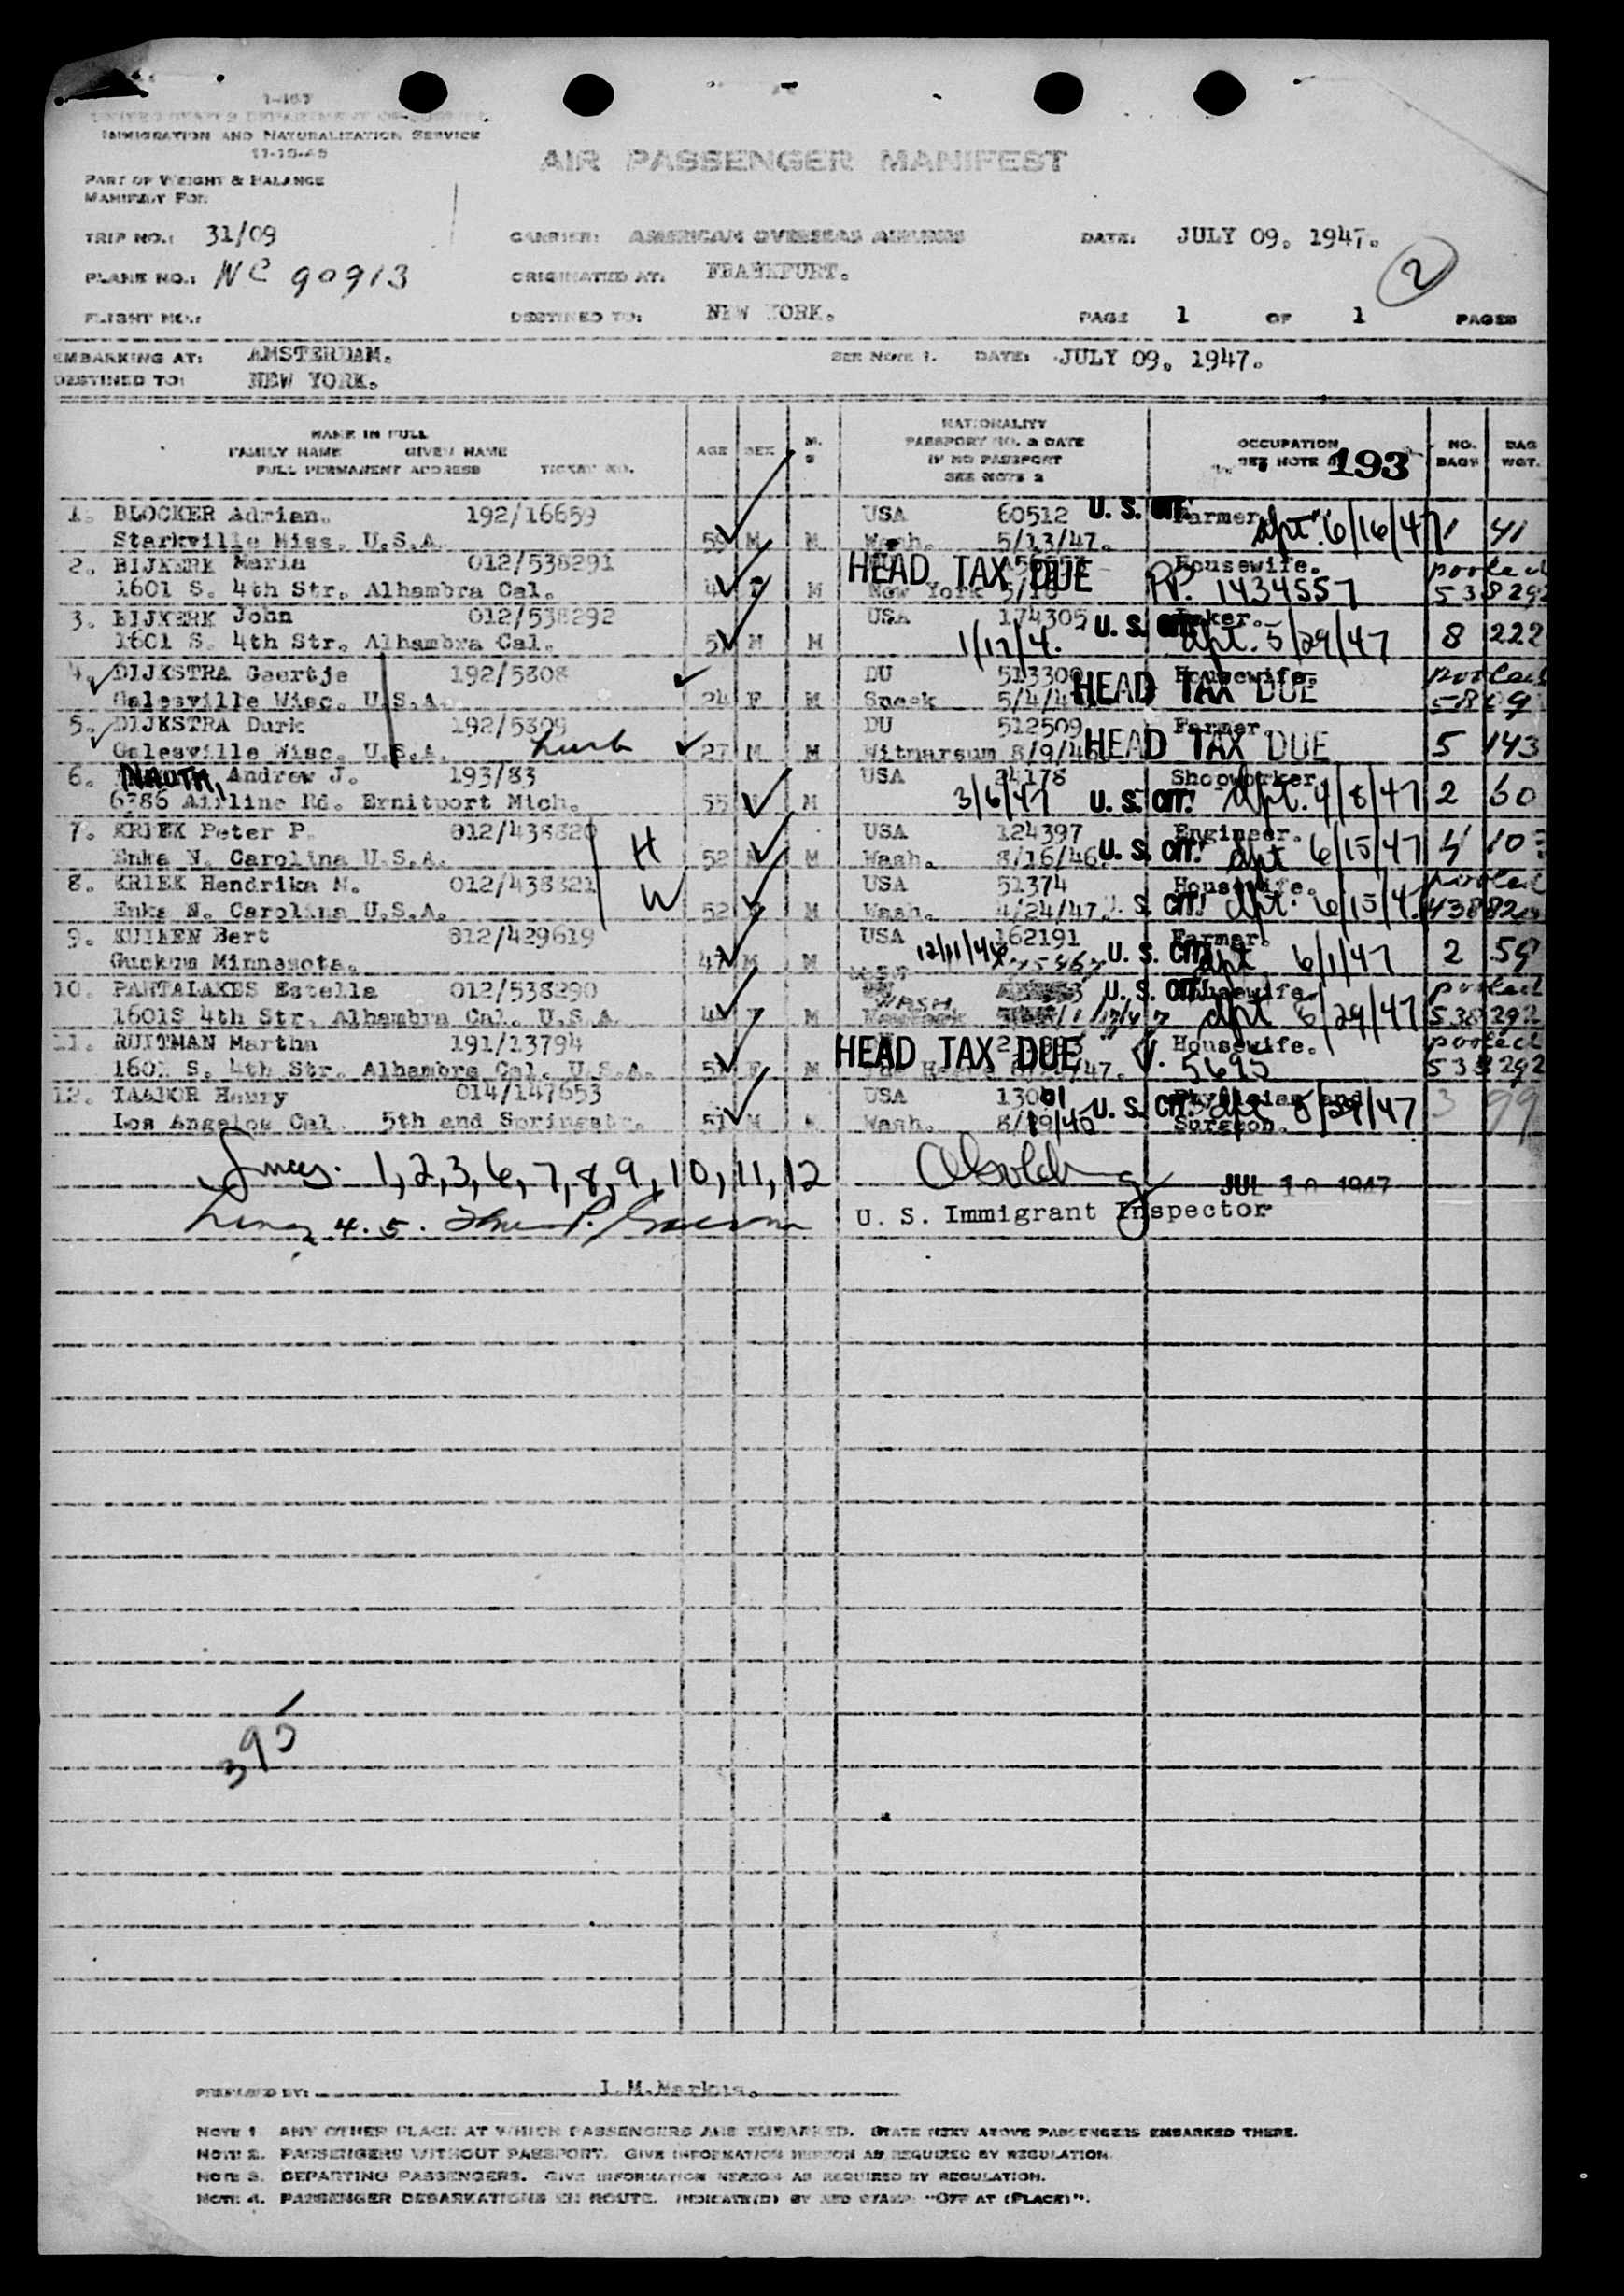 I-467
UNITED STATES DEPARTMENT OF JUSTICE
IMMIGRATION AND NATURALIZATION SERVICE
11-15-45
AIR PASSENGER MANIFEST
PART OF WEIGHT & BALANCE
MANIFEST FOR:
TRIP NO.: 31/09 CARRIER: AMERICAN OVERSEAS AIRLINES DATE: JULY 09. 1947.
PLANE NO.: NC 90913 ORIGINATED AT: FRANKFURT. 2
FLIGHT NO.: DESTINED TO: NEW YORK. PAGE 1 OF 1 PAGES
EMBARKING AT: AMSTERDAM. SEE NOTE 1. DATE: JULY 09. 1947.
DESTINED TO: NEW YORK.
NAME IN FULL
FAMILY NAME GIVEN NAME
FULL PERMANENT ADDRESS TICKET NO.
AGE SEX M. S
NATIONALITY
PASSPORT NO. & DATE
IF NO PASSPORT
SEE NOTE 2
OCCUPATION
SEE NOTE 193
NO. BAGS BAG WGT.
1. BLOCKER Adrian. 192/16659 USA 60512 U. S. CIT. Farmer. 6/16/47 1 41
Starkville Miss. U.S.A. 59 M M Wash. 5/13/47.
2. BIJKERK Maria 012/538291 HEAD TAX DUE Housewife. pooled
1601 S. 4th Str. Alhambra Cal. M New York PP. 1434557 538292
3. BIJKERK John 012/538292 USA 174305 U. S. CIT. Baker.
1601 S. 4th Str. Alhambra Cal. M M 1/17/4. 5/29/47 8 222
4. DIJKSTRA Geertje 192/5308 DU 513300 Housewife. pooled
Galesville Wisc. U.S.A. 24 F M Sneek 5/4/4 HEAD TAX DUE 5809
5. DIJKSTRA Durk 192/5309 DU 512509 Farmer.
Galesville Wisc. U.S.A. 27 M M Witmarsum 8/9/46 HEAD TAX DUE 5 143
6. NAUTA, Andrew J. 193/83 USA 34178 Shopworker
6786 Airline Rd. Ernitport Mich. 55 M 3/6/47 U. S. CIT. 4/8/47 2 60
7. KRIEK Peter P. 012/438820 H USA 124397 Engineer.
Enka N. Carolina U.S.A. 52 M Wash. 8/16/46. U. S. CIT. 6/15/47 4 103
8. KRIEK Hendrika M. 012/438821 W USA 51374 Housewife. pooled
Enka N. Carolina U.S.A. 52 M Wash. 4/24/47. S. CIT. 6/15/4 438820
9. KUIKEN Bert 012/429619 USA 162191 Farmer.
Guckum Minnesota. 47 M M 12/11/46 U. S. CIT. 6/1/47 2 59
10. PANTALAKES Estella 012/538290 WASH U. S. CIT. Housewife. pooled
1601S 4th Str. Alhambra Cal. U.S.A. M 5/29/47 538292
11. RUITMAN Martha 191/13794 HEAD TAX DUE Housewife. pooled
1601 S. 4th Str. Alhambra Cal. U.S.A. F M V. 5695 538292
12. TAADOR Henry 014/147653 USA 13001 Physician and
Los Angelos Cal. 5th and Springstr. 51 M Wash. 8/29/45 U. S. CIT. 5/29/47 Surgeon. 3 99
1,2,3,6,7,8,9,10,11,12
JUL 10 1947
4. 5. U. S. Immigrant Inspector
395
PREPARED BY: I.M.Markus.
NOTE 1 ANY OTHER PLACE AT WHICH PASSENGERS ARE EMBARKED. STATE NEXT ABOVE PASSENGERS EMBARKED THERE.
NOTE 2. PASSENGERS WITHOUT PASSPORT. GIVE INFORMATION HEREON AS REQUIRED BY REGULATION.
NOTE 3. DEPARTING PASSENGERS. GIVE INFORMATION HEREON AS REQUIRED BY REGULATION.
NOTE 4. PASSENGER DEBARKATIONS EN ROUTE. INDICATE(D) BY RED STAMP "OFF AT (PLACE)".